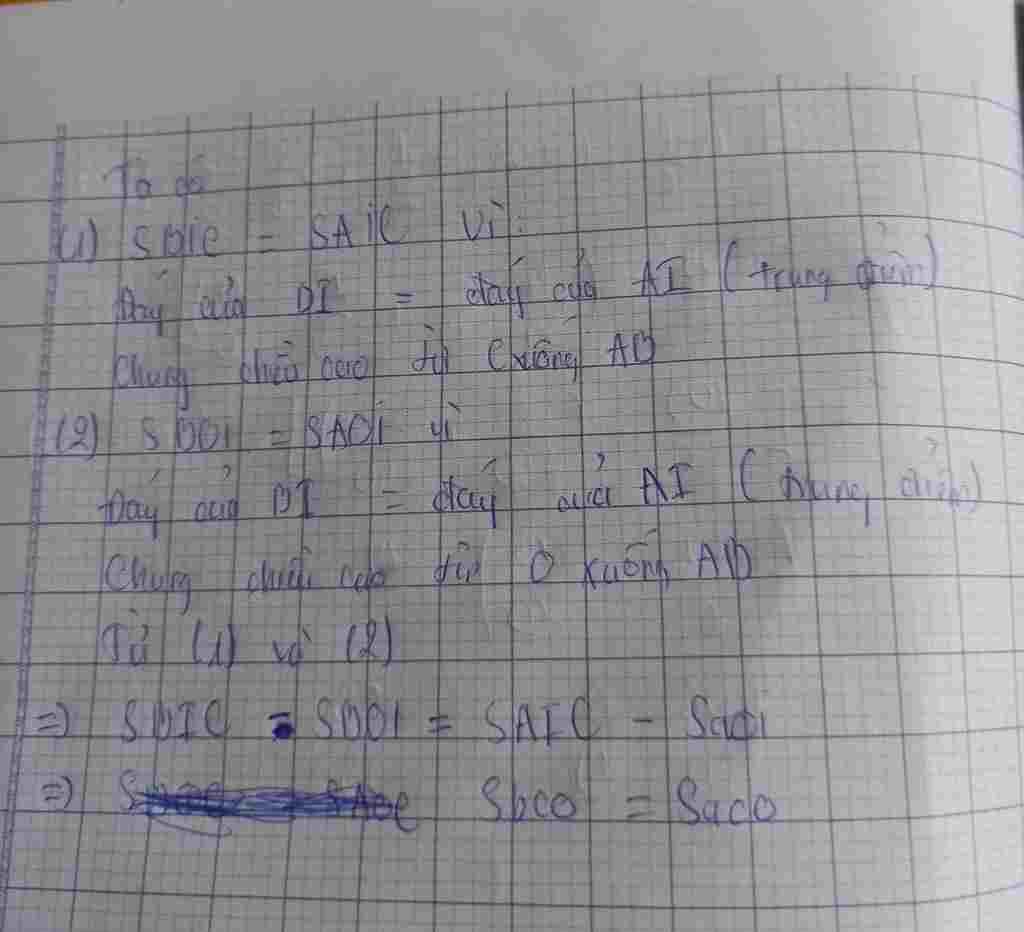 Ta có
(1) SDIC = SAIC Vì:
Đáy của DI = đáy của AI (trung điểm)
Chung chiều cao từ C xuống AD
(2) SDOI = SAOI vì
Đáy của DI = đáy của AI (trung điểm)
Chung chiều cao từ O xuống AD
Từ (1) và (2)
=> SDIC - SDOI = SAIC - Saoi
=> Sdco = Saco